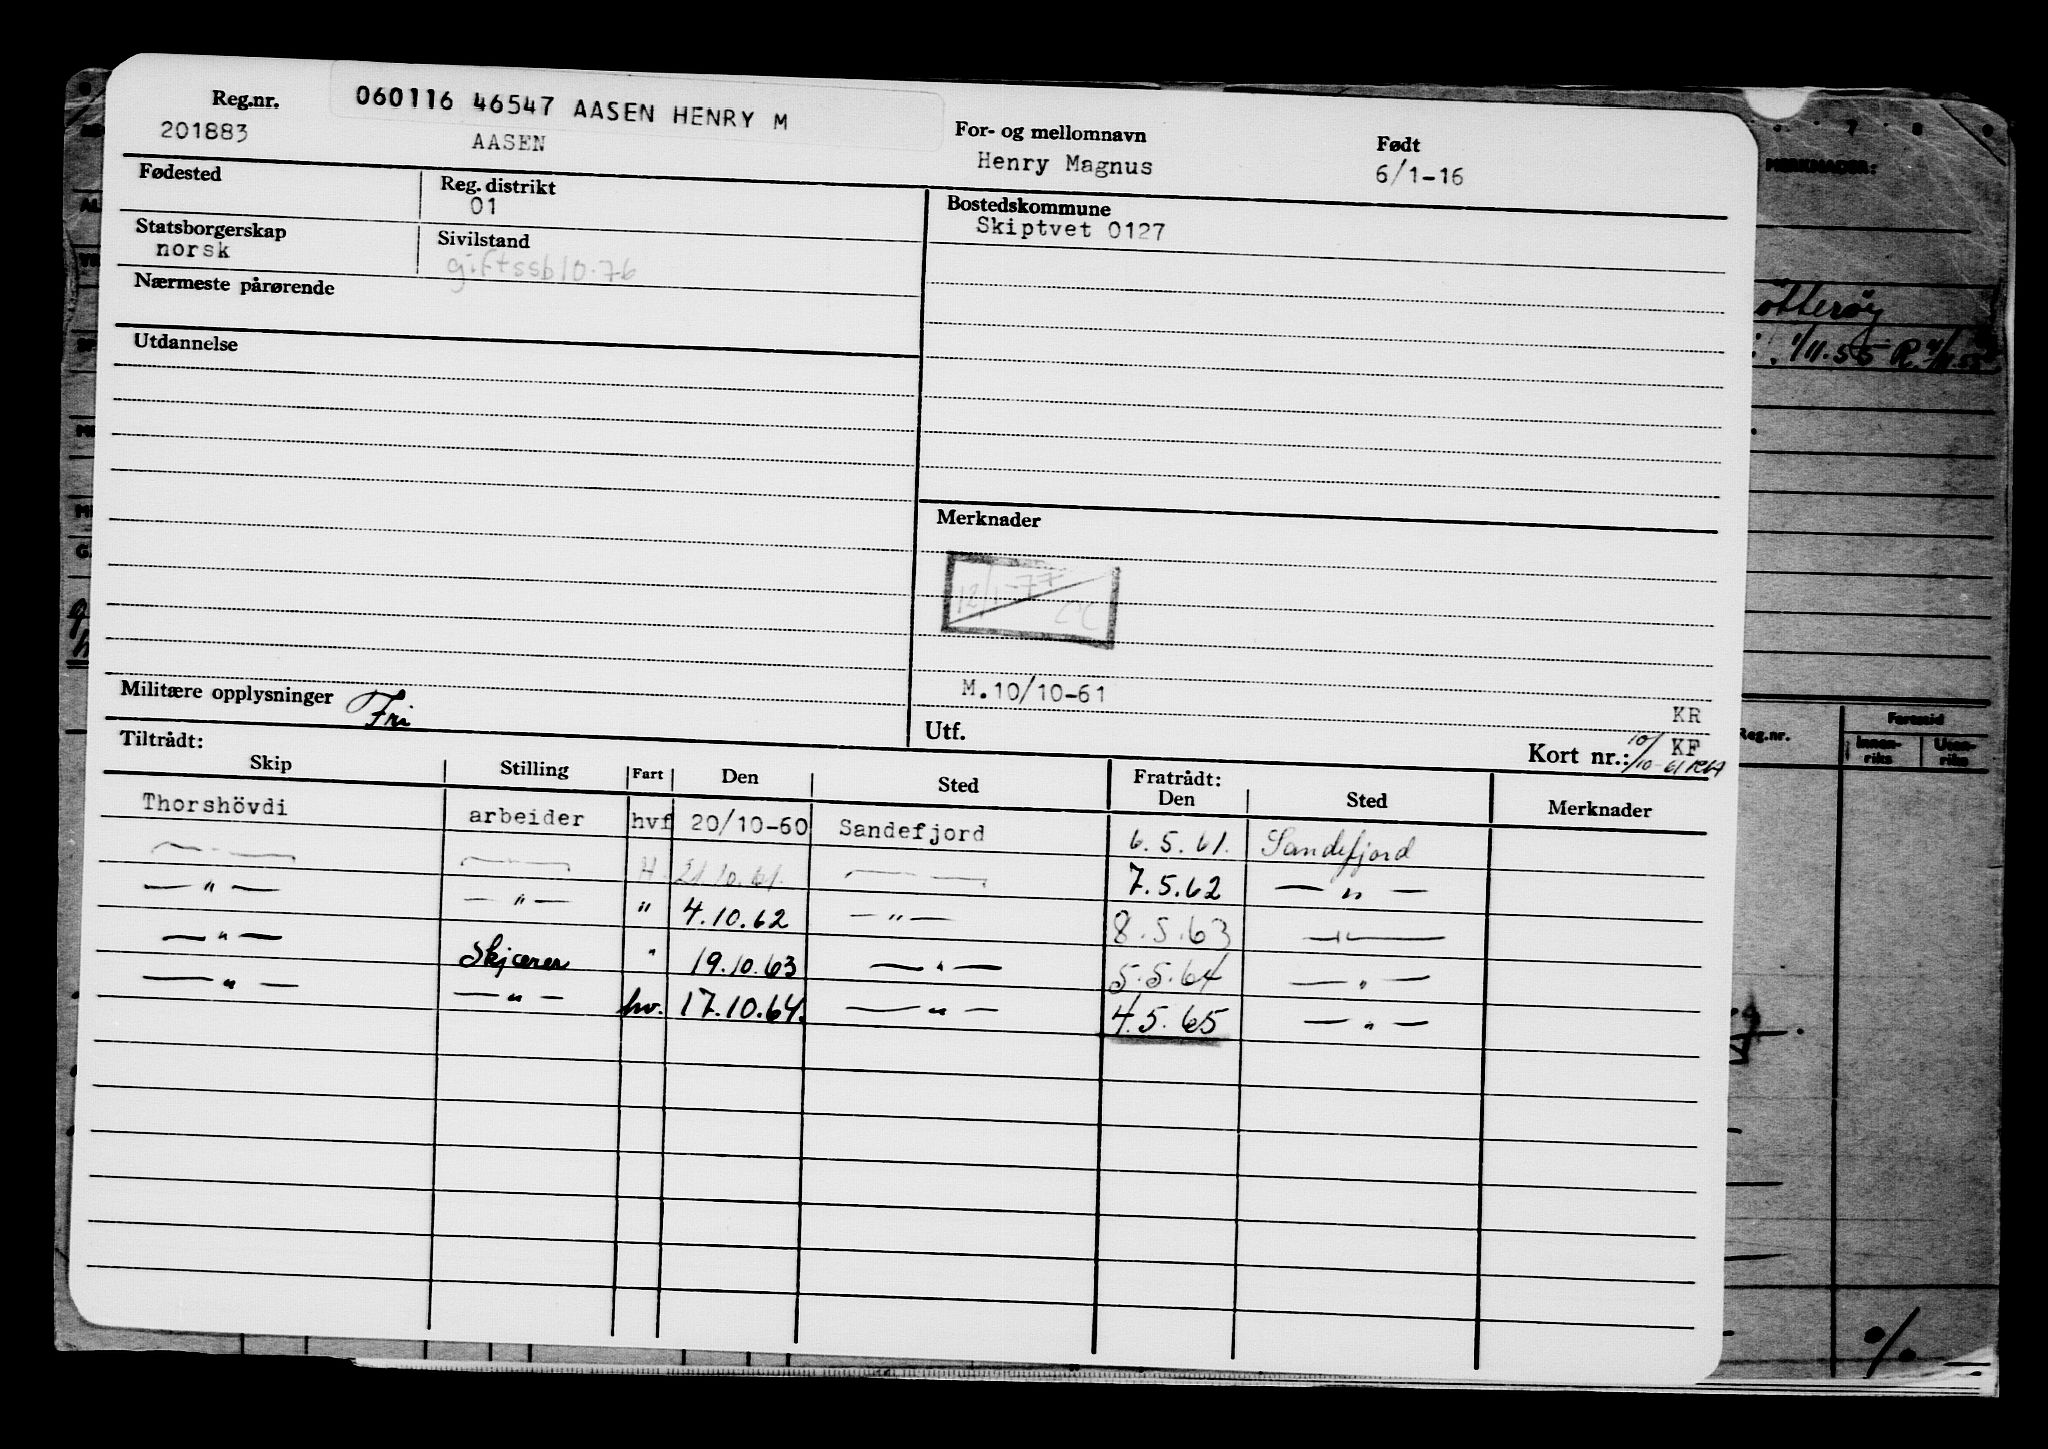 Reg.nr. 060116 46547 AASEN HENRY M
201883 AASEN
For- og mellomnavn Født
Henry Magnus 6/1-16
Fødested Reg. distrikt
01
Bostedskommune
Skiptvet 0127
Statsborgerskap Sivilstand
norsk gift ssb 10.76
Nærmeste pårørende
Utdannelse
Merknader
12/1-77
M.10/10-61
KR
Militære opplysninger Fri
Utf. Kort nr.: 10/10-61 KF
Tiltrådt: Fratrådt:
Skip Stilling Fart Den Sted Den Sted Merknader
Thorshövdi arbeider hvf 20/10-60 Sandefjord 6.5.61. Sandefjord
— — — — H 21.10.61. — — 7.5.62 — " —
— " — — " — " 4.10.62 — " — 8.5.63 — " —
— " — Skjærer " 19.10.63 — " — 5.5.64 — " —
— " — — " — hv. 17.10.64. — " — 4.5.65 — " —
MERKNADER:
otterøy
1/11.55 R.
Reg.nr.
Fartstid
Innen-riks
Uten-riks